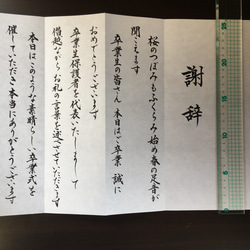 謝辞
桜のつぼみもふくらみ始め春の足音が
聞こえます
卒業生の皆さん 本日はご卒業 誠に
おめでとうございます
卒業生保護者を代表いたしまして
僭越ながらお礼の言葉を述べさせていただきます
本日はこのような素晴らしい卒業式を
催していただき 本当にありがとうございます